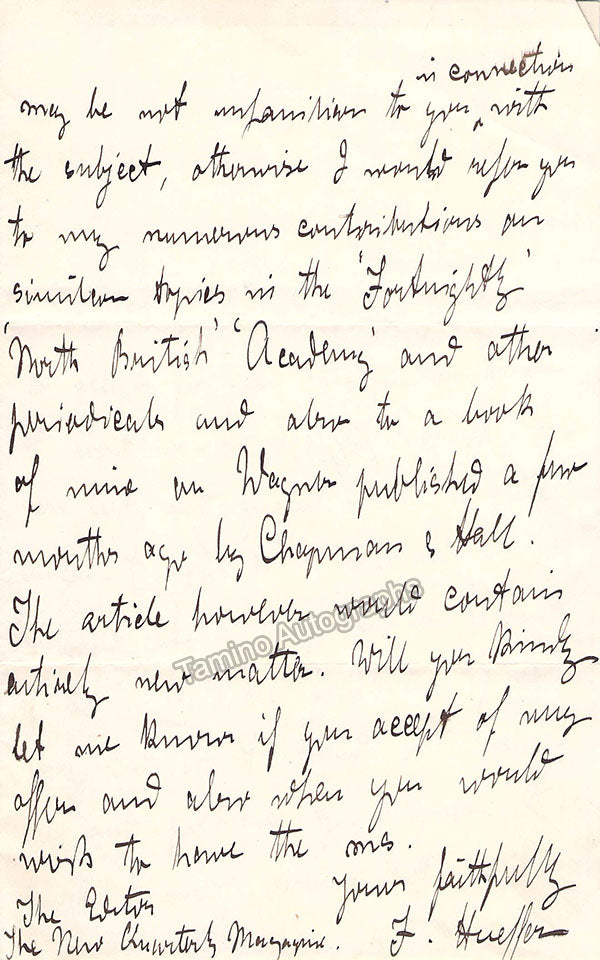 in connection
may be not unfamiliar to you ^ with
the subject, otherwise I would refer you
to my numerous contributions on
similar topics in the 'Fortnightly'
'North British' 'Academy' and other
periodicals and also to a book
of mine on Wagner published a few
months ago by Chapman & Hall.
The article however would contain
entirely new matter. Will you kindly
let me know if you accept of my
offer and also when you would
wish to have the ms.
Yours faithfully
F. Hueffer
The Editor
The New Quarterly Magazine.
Tamino Autographs